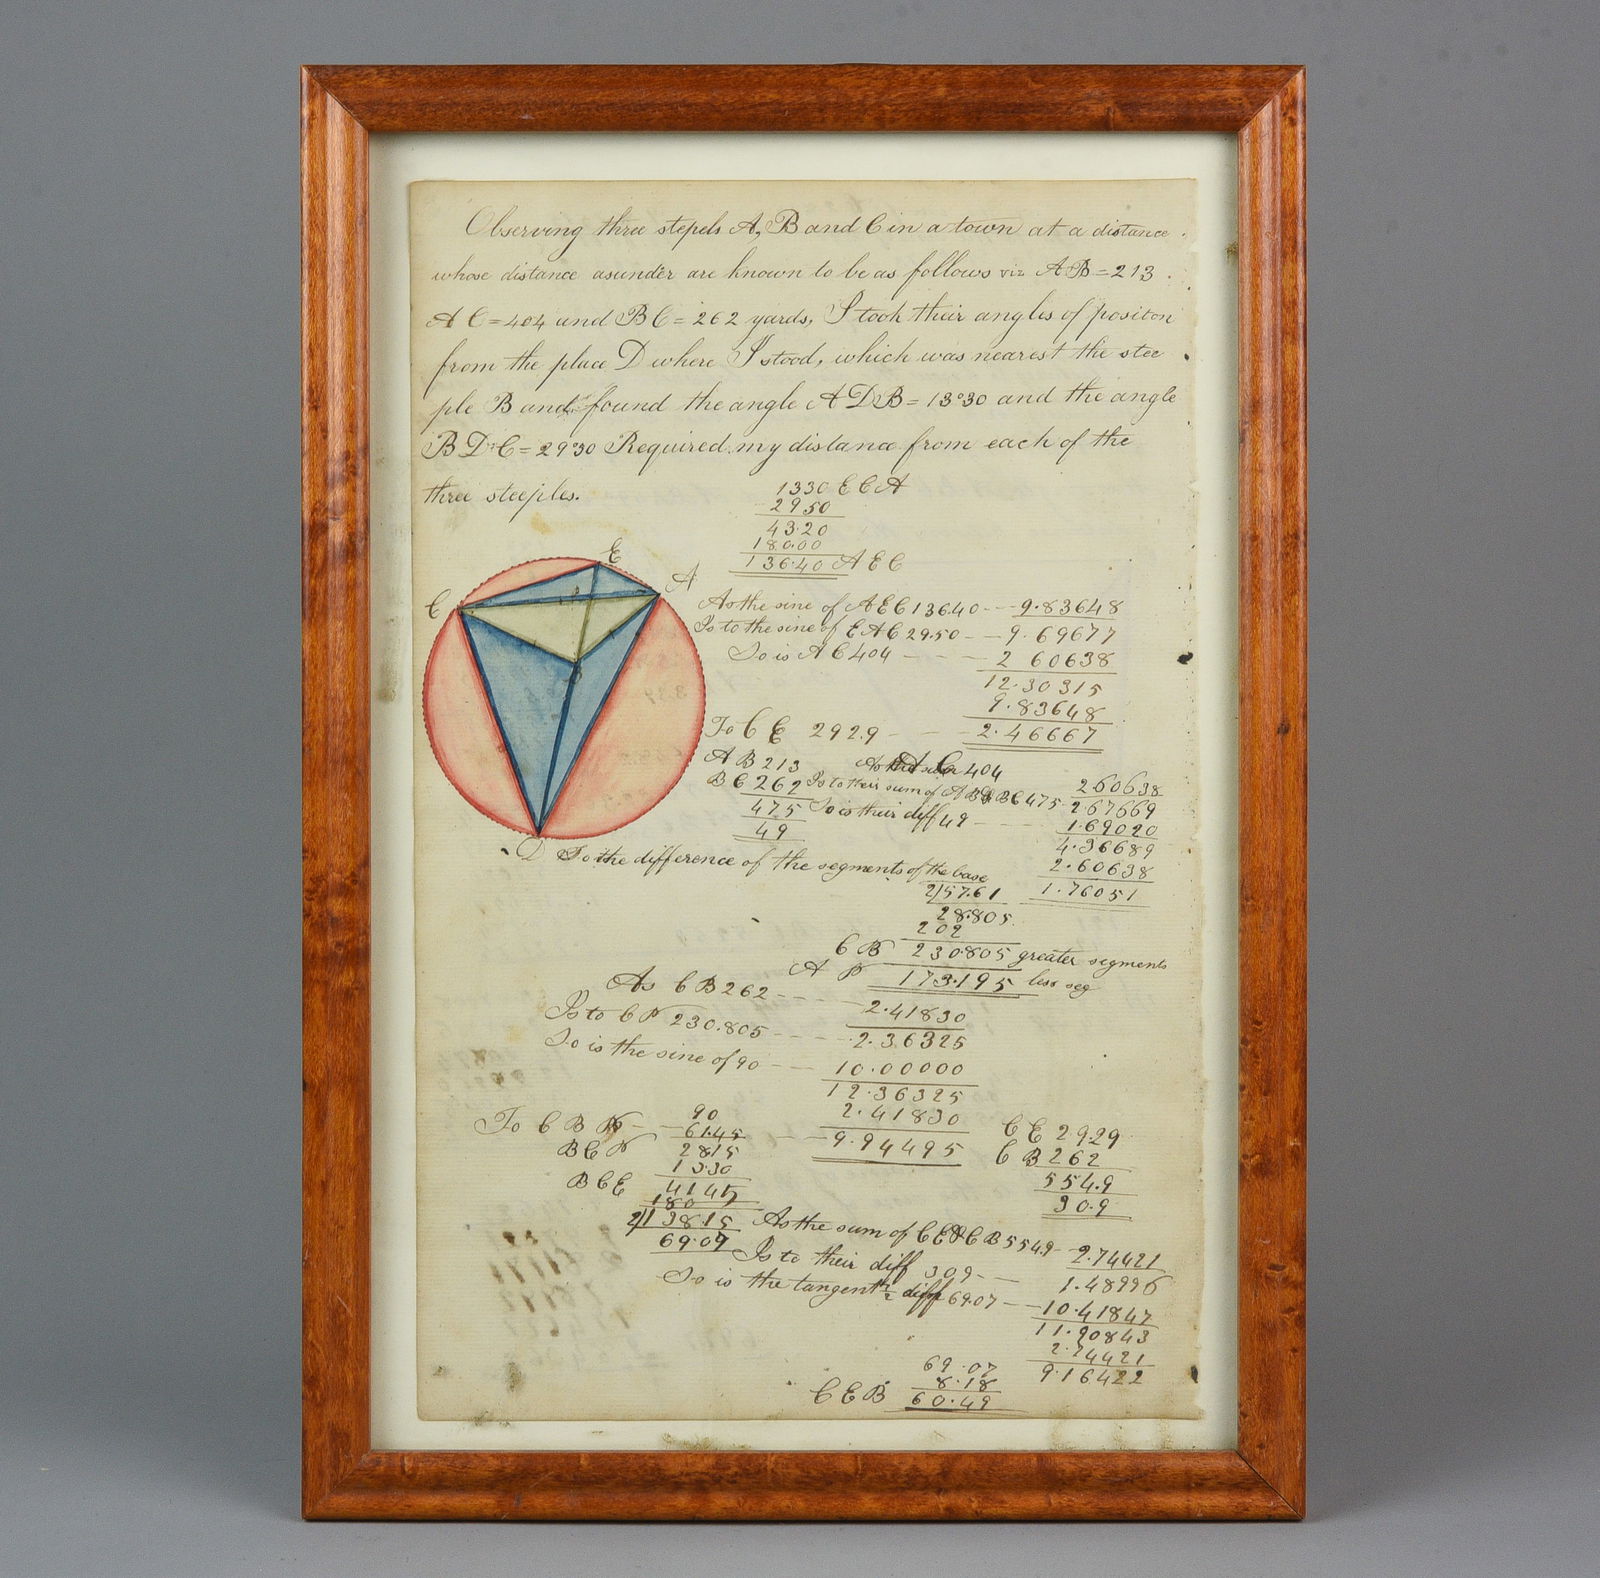 Observing three stepels A, B and C in a town at a distance
whose distance asunder are known to be as follows viz AB=213
AC=404 and BC=262 yards, I took their angles of positon
from the place D where I stood, which was nearest the stee
ple B and found the angle ADB=13°30 and the angle
BDC=29°50 Required my distance from each of the
three steeples.
1330 ECA
29 50
43.20
180.00
136.40 AEC
E
A
C
B
D
As the sine of AEC 136.40 -- 9.83648
Is to the sine of EAC 29.50 -- 9.69677
So is AC 404 - - - 2 60638
12.30315
9.83648
To CE 292.9 - - 2.46667
AB 213
BC 262
475
49
AC 404 2.60638
Is to their sum of AB & BC 475 - 2.67669
So is their diff 49 - - 1.69020
4.36689
2.60638
1.76051
To the difference of the segments of the base
2)57.61
28.805
202
CP 230.805 greater segments
AP 173.195 less seg
As CB 262 - - - 2.41830
Is to CP 230.805 - - - 2.36325
So is the sine of 90 - - 10.00000
12.36325
2.41830
To CBP - 61.45 - - 9.94495
90
61.45
BCP 2815
13.30
BCE 4145
180
2)138.15
69.07
CE 29.29
CB 262
554.9
30.9
As the sum of CE & CB 554.9 - 2.74421
Is to their diff 309 - - 1.48996
So is the tangent ½ diff 69.07 - - 10.41847
11.90843
2.74421
9.16422
69.07
8.18
CEB 60.49